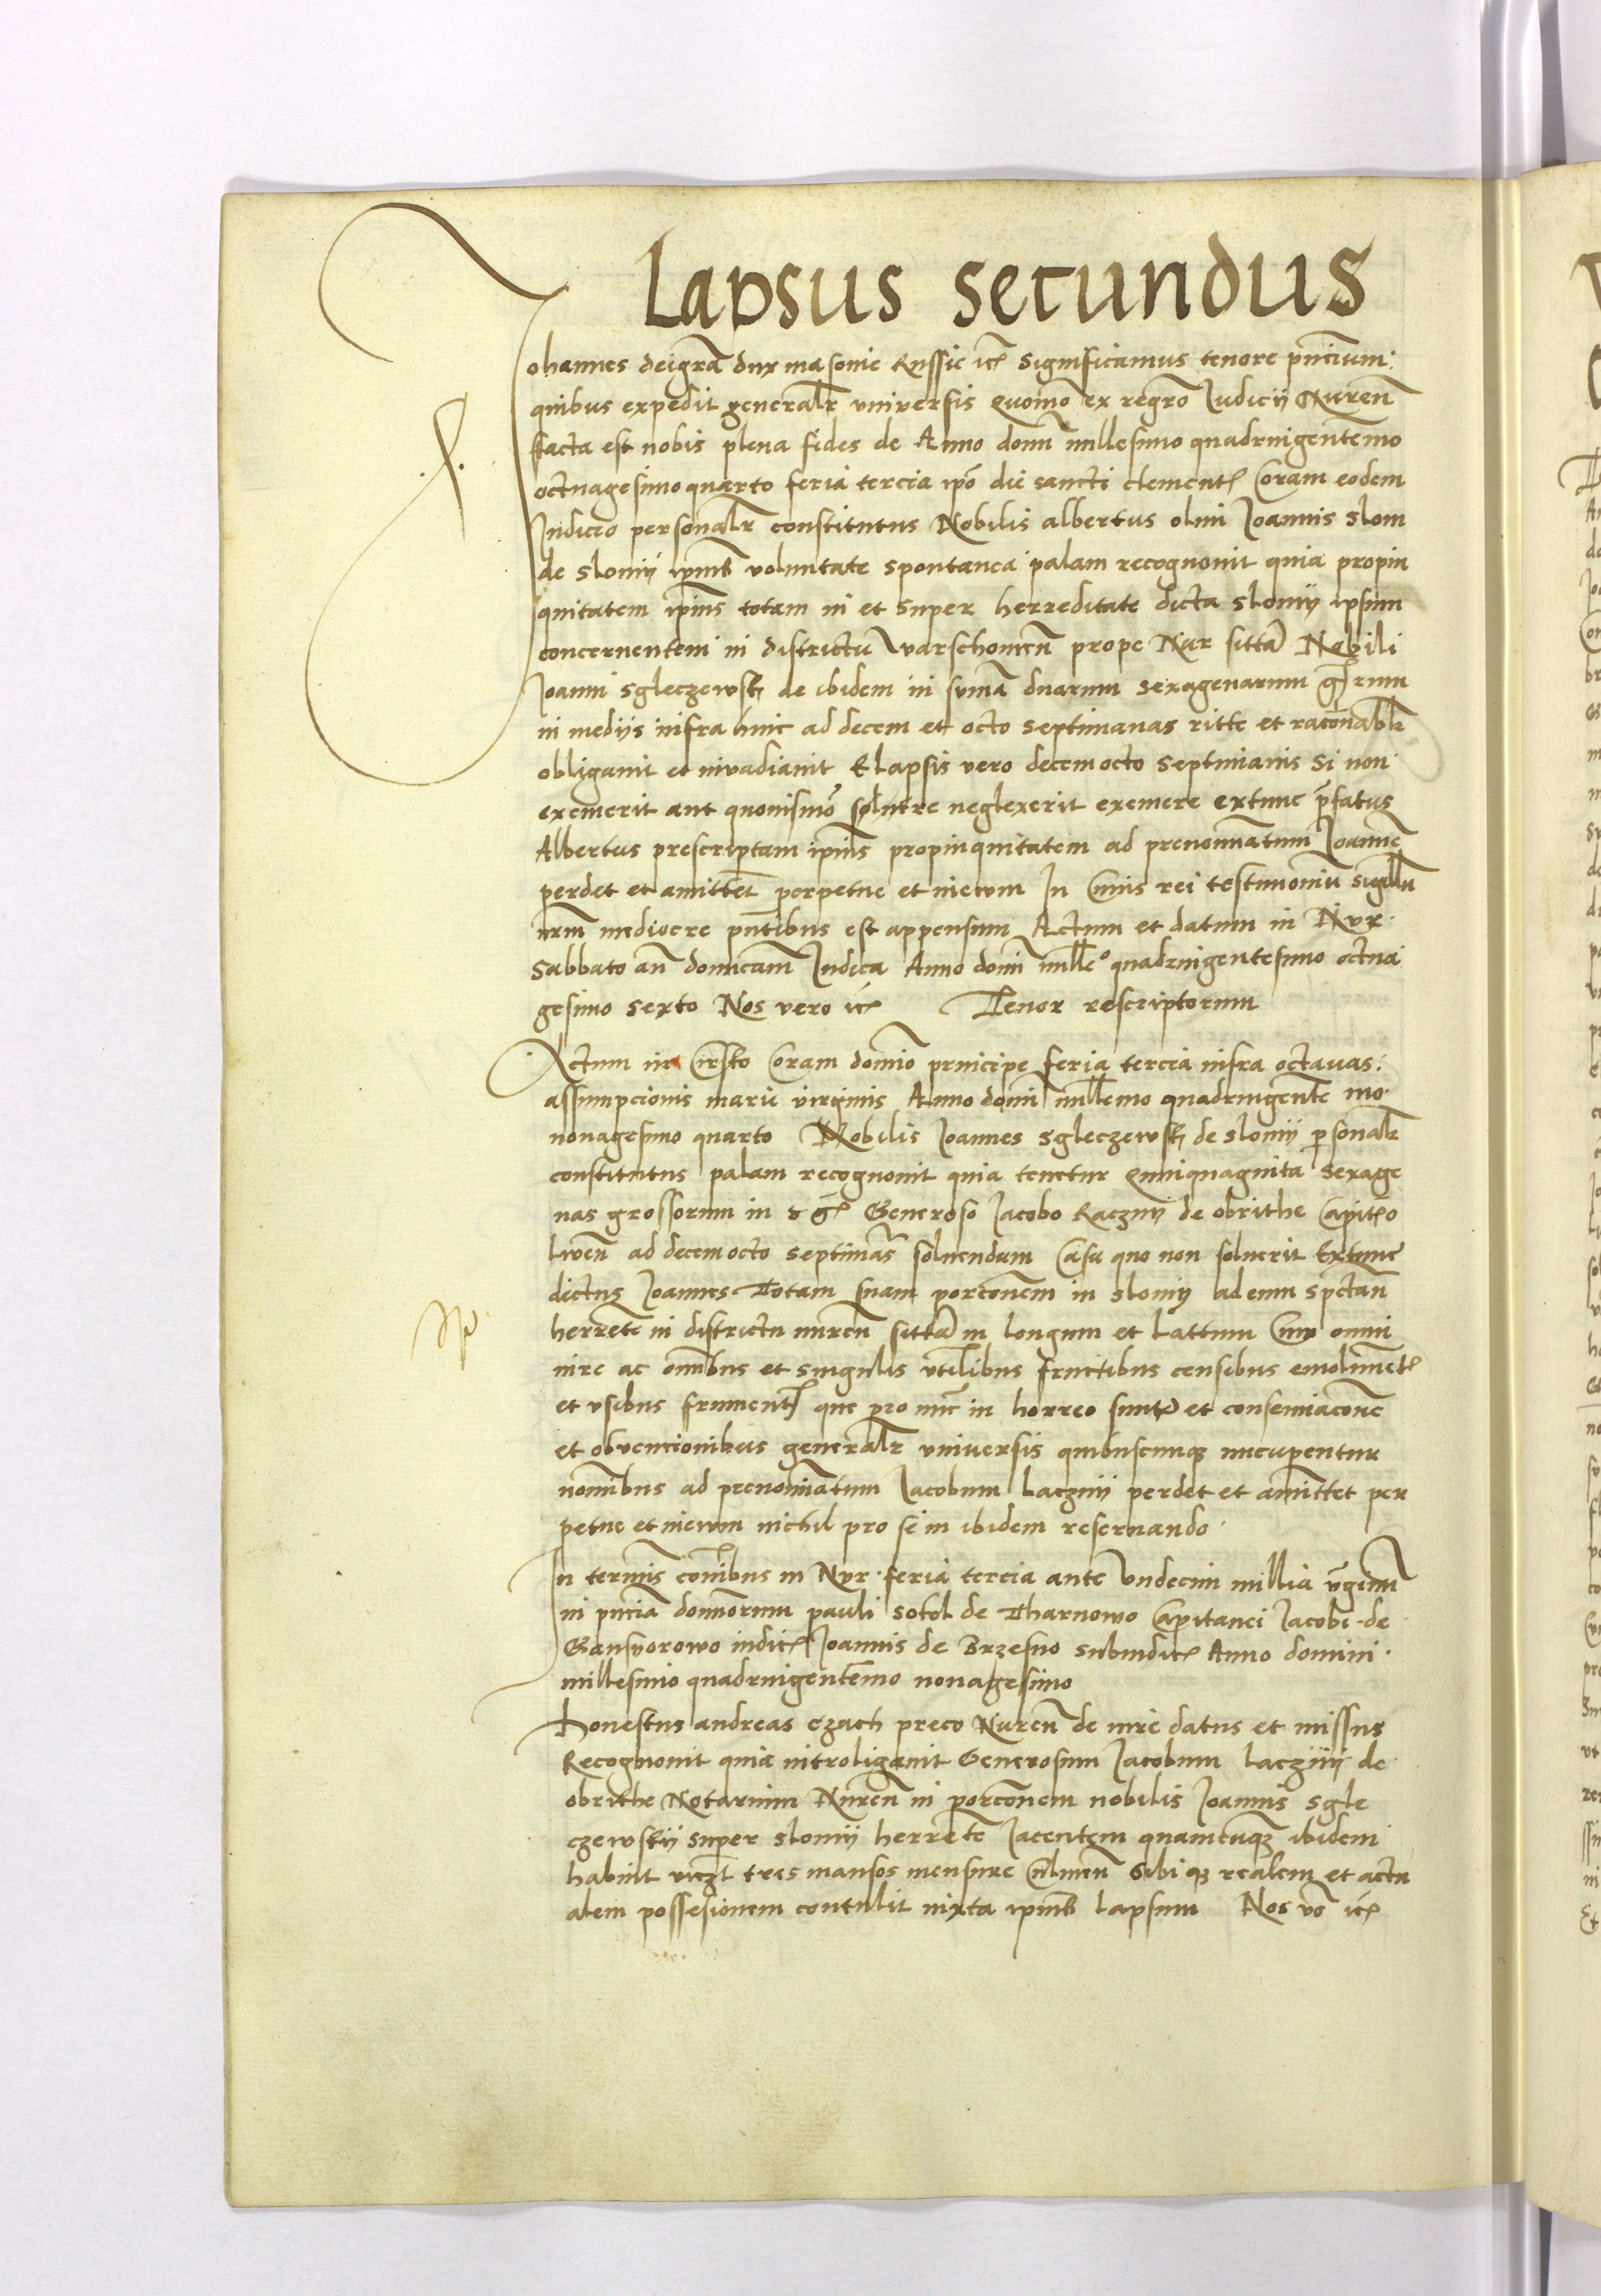 Lapsus secundus
Johannes dei gra dux masovie Russie ic significamus tenore pntium
quibus expedit generalr universis Quomo ex regro Judicij Nuren
facta est nobis plena fides de Anno domi millesimo quadringentemo
octuagesimo quarto feria tercia ipo die sancti clement Coram eodem
Judicio personalr constitutus Nobilis albertus olim Joannis slom
de slomij ipius voluntate spontanea palam recognovit quia propin
quitatem ipius totam in et super herreditate dicta slomij ipsum
concernentem in districtu varschomen prope Nur sitta Nobili
Joanni sgleczewsk de ibidem in suma duarum sexagenarum grrum
in medijs infra hinc ad decem et octo septimanas ritte et raconablr
obligavit et invadiavit Elapsis vero decem octo septimanis si non
exemerit aut quovismo solvere neglexerit exemere extunc pfatus
Albertus prescriptam ipius propinquitatem ad prenominatum Joanne
perdet et amittet perpetue et in ewm In Cuius rei testimoniu sigillu
nrm mediocre pntibus est appensum Actum et datum in Nur
Sabbato an domicam Judica Anno domi mille quadringentesimo octua
gesimo sexto Nos vero ic Tenor rescriptorum
Actum in Cirsko Coram domio principe feria tercia infra octavas
assumpcionis marie virginis Anno domi millemo quadringente mo
nonagesimo quarto Nobilis Joannes sgleczewsk de slomij psonalr
constitutus palam recognovit quia tenetur quinquaginta sexage
nas grossorum in s g Generoso Jacobo Racznij de obrithe Capit o
liven ad decem octo septimas solvendum Casu quo non solverit Extunc
dictus Joannes Totam suam porconem in slomij ad eum spctan
herrete in districtu nuren sitta in longum et lattum Cum omni
iure ac omibus et singulis utilibus fructibus censibus emolimet
et usibus frument que pro nuc in horreo sunt et conseminacone
et obvencionibus generalr universis quibuscunq nucupentur
nomibus ad prenominatum Jacobum Lacznij perdet et amittet per
petue et in ewm nichil pro se in ibidem reservando
In termis comibus in Nur feria tercia ante Undecim millia vginu
in pncia dominorum pauli sokol de Tharnowo Capitanei Jacobi de
Gansyorowo iudic Joannis de Brzesno subiudic Anno domini
millesimo quadringentemo nonagesimo
Honestus andreas czach preco Nuren de iure datus et missus
Recognovit quia introligavit Generosum Jacobum Lacznij de
obrithe Notarium Nuren in porconem nobilis Joannis sgle
czewskij super slomij herrete Jacentem quamcuq ibidem
habuit viczt tres mansos mensure Culmen Sibi q realem et actu
alem possesionem contulit iuxta ipius lapsum Nos vo ic